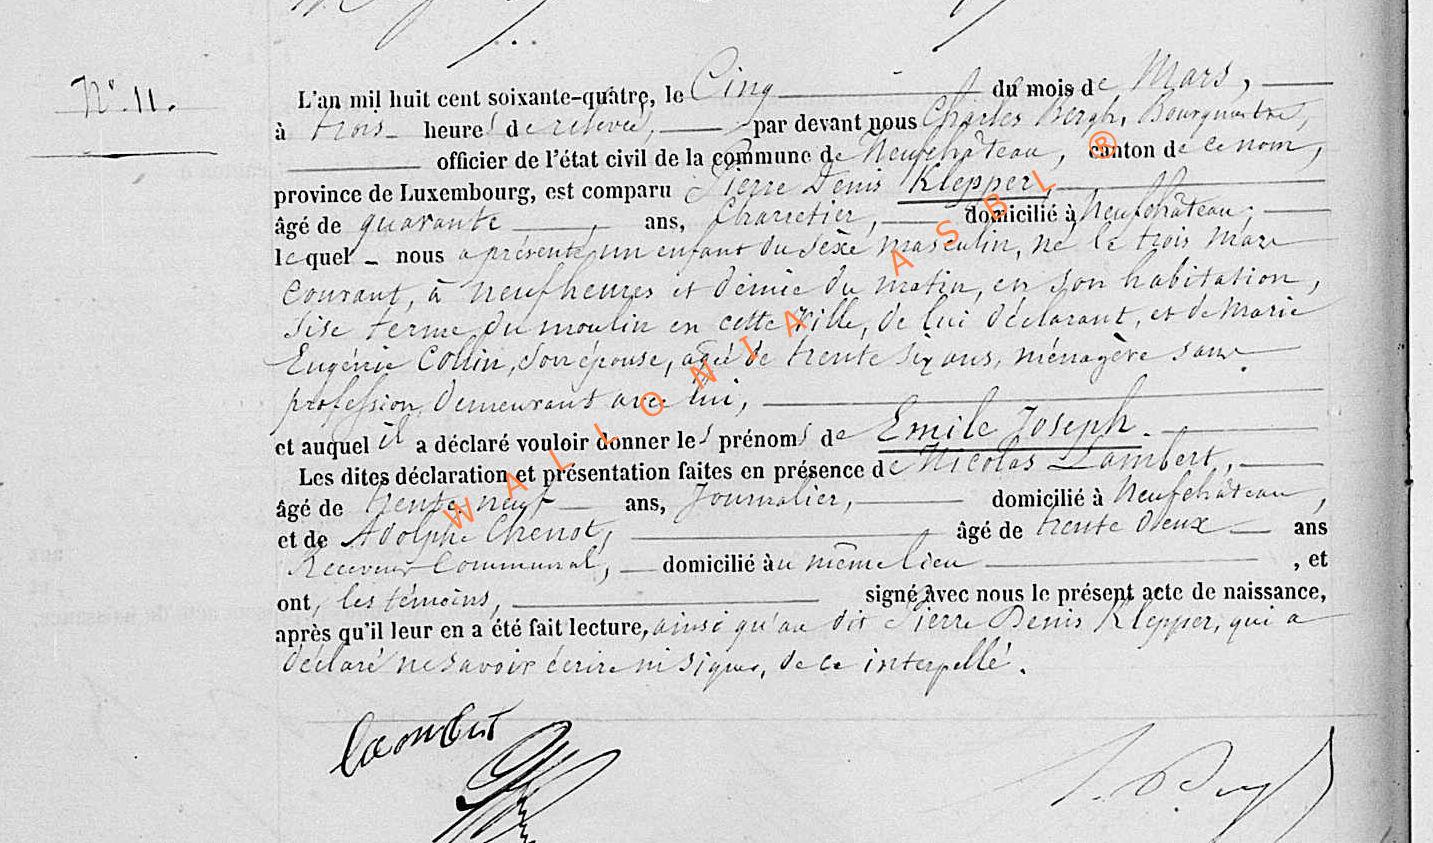 N° 11.
L'an mil huit cent soixante-quatre, le Cinq du mois de Mars,
à trois heures de relevée, par devant nous Charles Bergh, Bourgmestre,
officier de l'état civil de la commune de Neufchâteau, canton de ce nom,
province de Luxembourg, est comparu Pierre Denis Klepper,
âgé de quarante ans, Charretier, domicilié à Neufchâteau,
lequel nous a présenté un enfant du sexe masculin, né le trois Mars
courant, à neuf heures et demie du matin, en son habitation,
sise ferme du moulin en cette ville, de lui déclarant, et de Marie
Eugénie Collin, son épouse, agée de trente six ans, ménagère sans
profession, demeurant avec lui,
et auquel il a déclaré vouloir donner les prénoms de Emile Joseph.
Les dites déclaration et présentation faites en présence de Nicolas Lambert,
âgé de trente neuf ans, Journalier, domicilié à Neufchâteau,
et de Adolphe Chenot, âgé de trente deux ans
Receveur Communal, domicilié au même lieu, et
ont, les témoins, signé avec nous le présent acte de naissance,
après qu'il leur en a été fait lecture, ainsi qu'au dit Pierre Denis Klepper, qui a
déclaré ne savoir écrire ni signer, de ce interpellé.
Lambert
WALLONIA ASBL ®